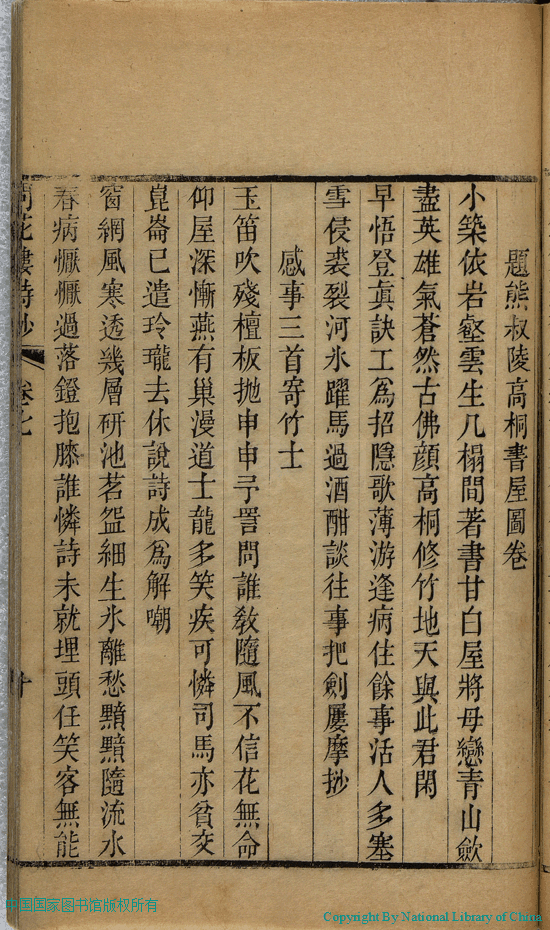 題熊叔陵高桐書屋圖卷
小築依岩壑雲生几榻間著書甘白屋將母戀青山歛
盡英雄氣蒼然古佛顏高桐修竹地天與此君閑
早悟登眞訣工爲招隱歌薄游逢病住餘事活人多塞
雪侵裘裂河氷躍馬過酒酣談往事把劍屢摩抄
感事三首寄竹士
玉笛吹殘檀板抛申申予詈問誰敎隨風不信花無命
仰屋深慚燕有巢漫道士龍多笑疾可憐司馬亦貧交
崑崙已遣玲瓏去休說詩成爲解嘲
窗網風寒透幾層硏池茗盌細生氷離愁黯黯隨流水
春病懨懨過落鐙抱膝誰憐詩未就埋頭任笑客無能
問花樓詩鈔
卷七
十
中国国家图书馆版权所有
Copyright By National Library of China